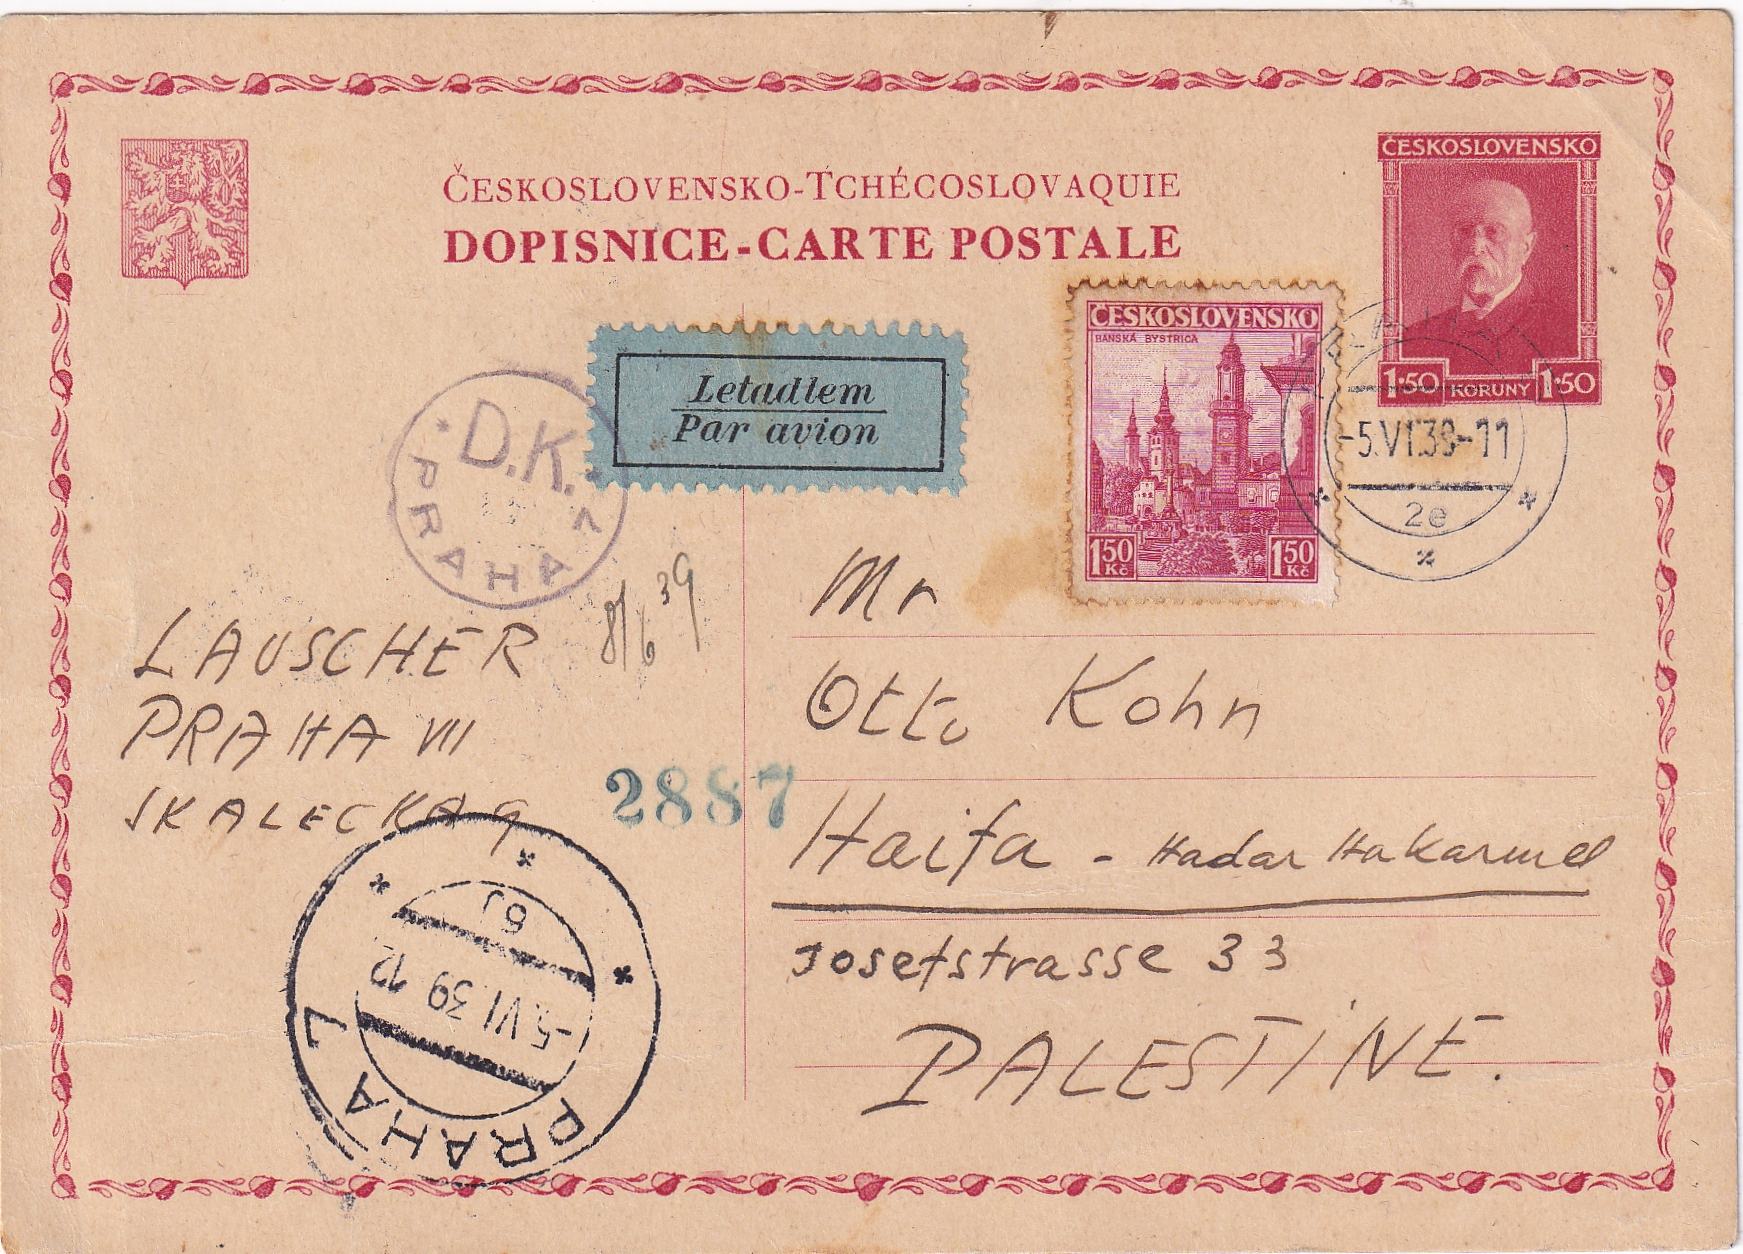 ČESKOSLOVENSKO-TCHÉCOSLOVAQUIE
DOPISNICE-CARTE POSTALE
ČESKOSLOVENSKO
1·50 KORUNY 1·50
ČESKOSLOVENSKO
BANSKÁ BYSTRICA
1 50 Kč 1 50 Kč
-5.VI.39-11
2e
Letadlem
Par avion
D.K.
PRAHA
8/6 39
LAUSCHER
PRAHA VII
SKALECKA 9
2887
Mr
Otto Kohn
Haifa - Hadar Hakarmel
Josefstrasse 33
PALESTINE.
PRAHA 7
-5.VI.39 12
6j